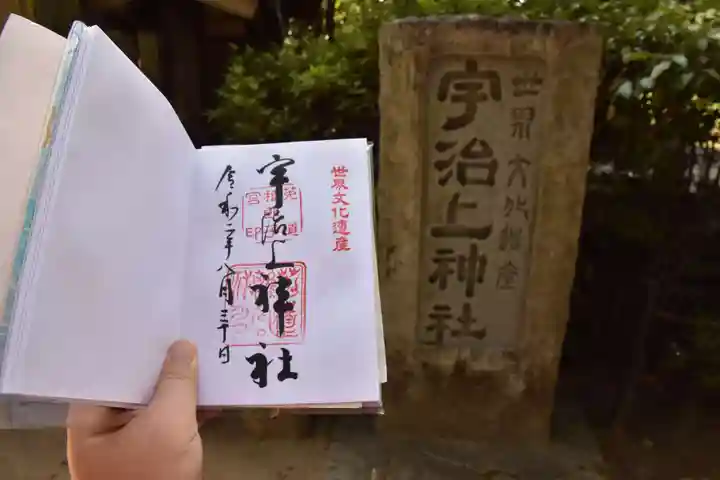 世界文化遺産
宇治上神社
令和二年八月三十日
世界文化遺産
宇治上神社